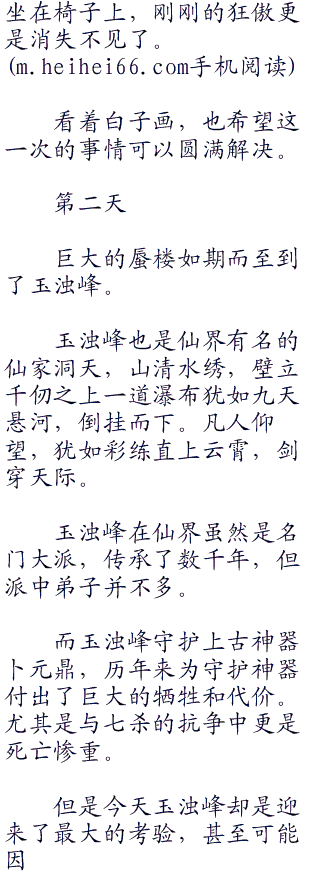 坐在椅子上，刚刚的狂傲更
是消失不见了。
(m.heihei66.com手机阅读)
看着白子画，也希望这
一次的事情可以圆满解决。
第二天
巨大的蜃楼如期而至到
了玉浊峰。
玉浊峰也是仙界有名的
仙家洞天，山清水绣，壁立
千仞之上一道瀑布犹如九天
悬河，倒挂而下。凡人仰
望，犹如彩练直上云霄，剑
穿天际。
玉浊峰在仙界虽然是名
门大派，传承了数千年，但
派中弟子并不多。
而玉浊峰守护上古神器
卜元鼎，历年来为守护神器
付出了巨大的牺牲和代价。
尤其是与七杀的抗争中更是
死亡惨重。
但是今天玉浊峰却是迎
来了最大的考验，甚至可能
因